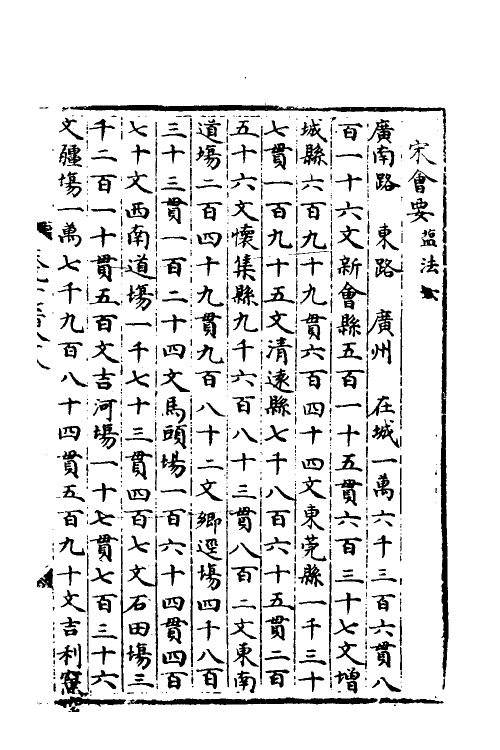 宋會要 盐法
廣南路 東路 廣州 在城一萬六千三百六貫八
百一十六文新會縣五百一十五貫六百三十七文增
城縣六百九十九貫六百四十四文東莞縣一千三十
七貫一百九十五文清遠縣七千八百六十五貫二百
五十六文懷集縣九千六百八十三貫八百二文東南
道場二百四十九貫九百八十二文鄉逕場四十八百
三十三貫一百二十四文馬頭場一百六十四貫四百
七十文西南道場一千七十三貫四百七文石田場三
千二百一十貫五百文吉河場一十七貫七百三十六
文疆場一萬七千九百八十四貫五百九十文吉利窠